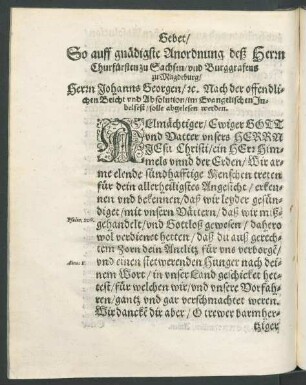 Gebet/
So auff gnädigste Anordnung deß Herrn
Churfürsten zu Sachsen/ vnd Burggrafens
zu Magdeburg/
Herrn Johanns Georgen/ ꝛc. Nach der offendli-
chen Beicht vnd Absolution/ im Evangelischen Ju-
belfest/ solle abgelesen werden.
ALmächtiger/ Ewiger GOTT
vnd Vatter vnsers HERRN
JESu Christi/ ein HErr Him-
mels vnnd der Erden/ Wir ar-
me elende sündhafftige Menschen tretten
für dein allerheiligstes Angesicht/ erken-
nen vnd bekennen/ daß wir leyder gesün-
diget/ mit vnsern Vättern/ daß wir miß-
gehandelt/ vnd Gottloß gewesen/ dahero
wol verdienet hetten/ daß du auß gerech-
tem Zorn dein Antlitz für vns verborgē/
vnd einen stetwerenden Hunger nach dei-
nem Wort/ in vnser Land geschicket het-
test/ für welchen wir/ vnd vnsere Vorfah-
ren/ gantz vnd gar verschmachtet weren.
Wir danckē dir aber/ O trewer barmher-
tziger